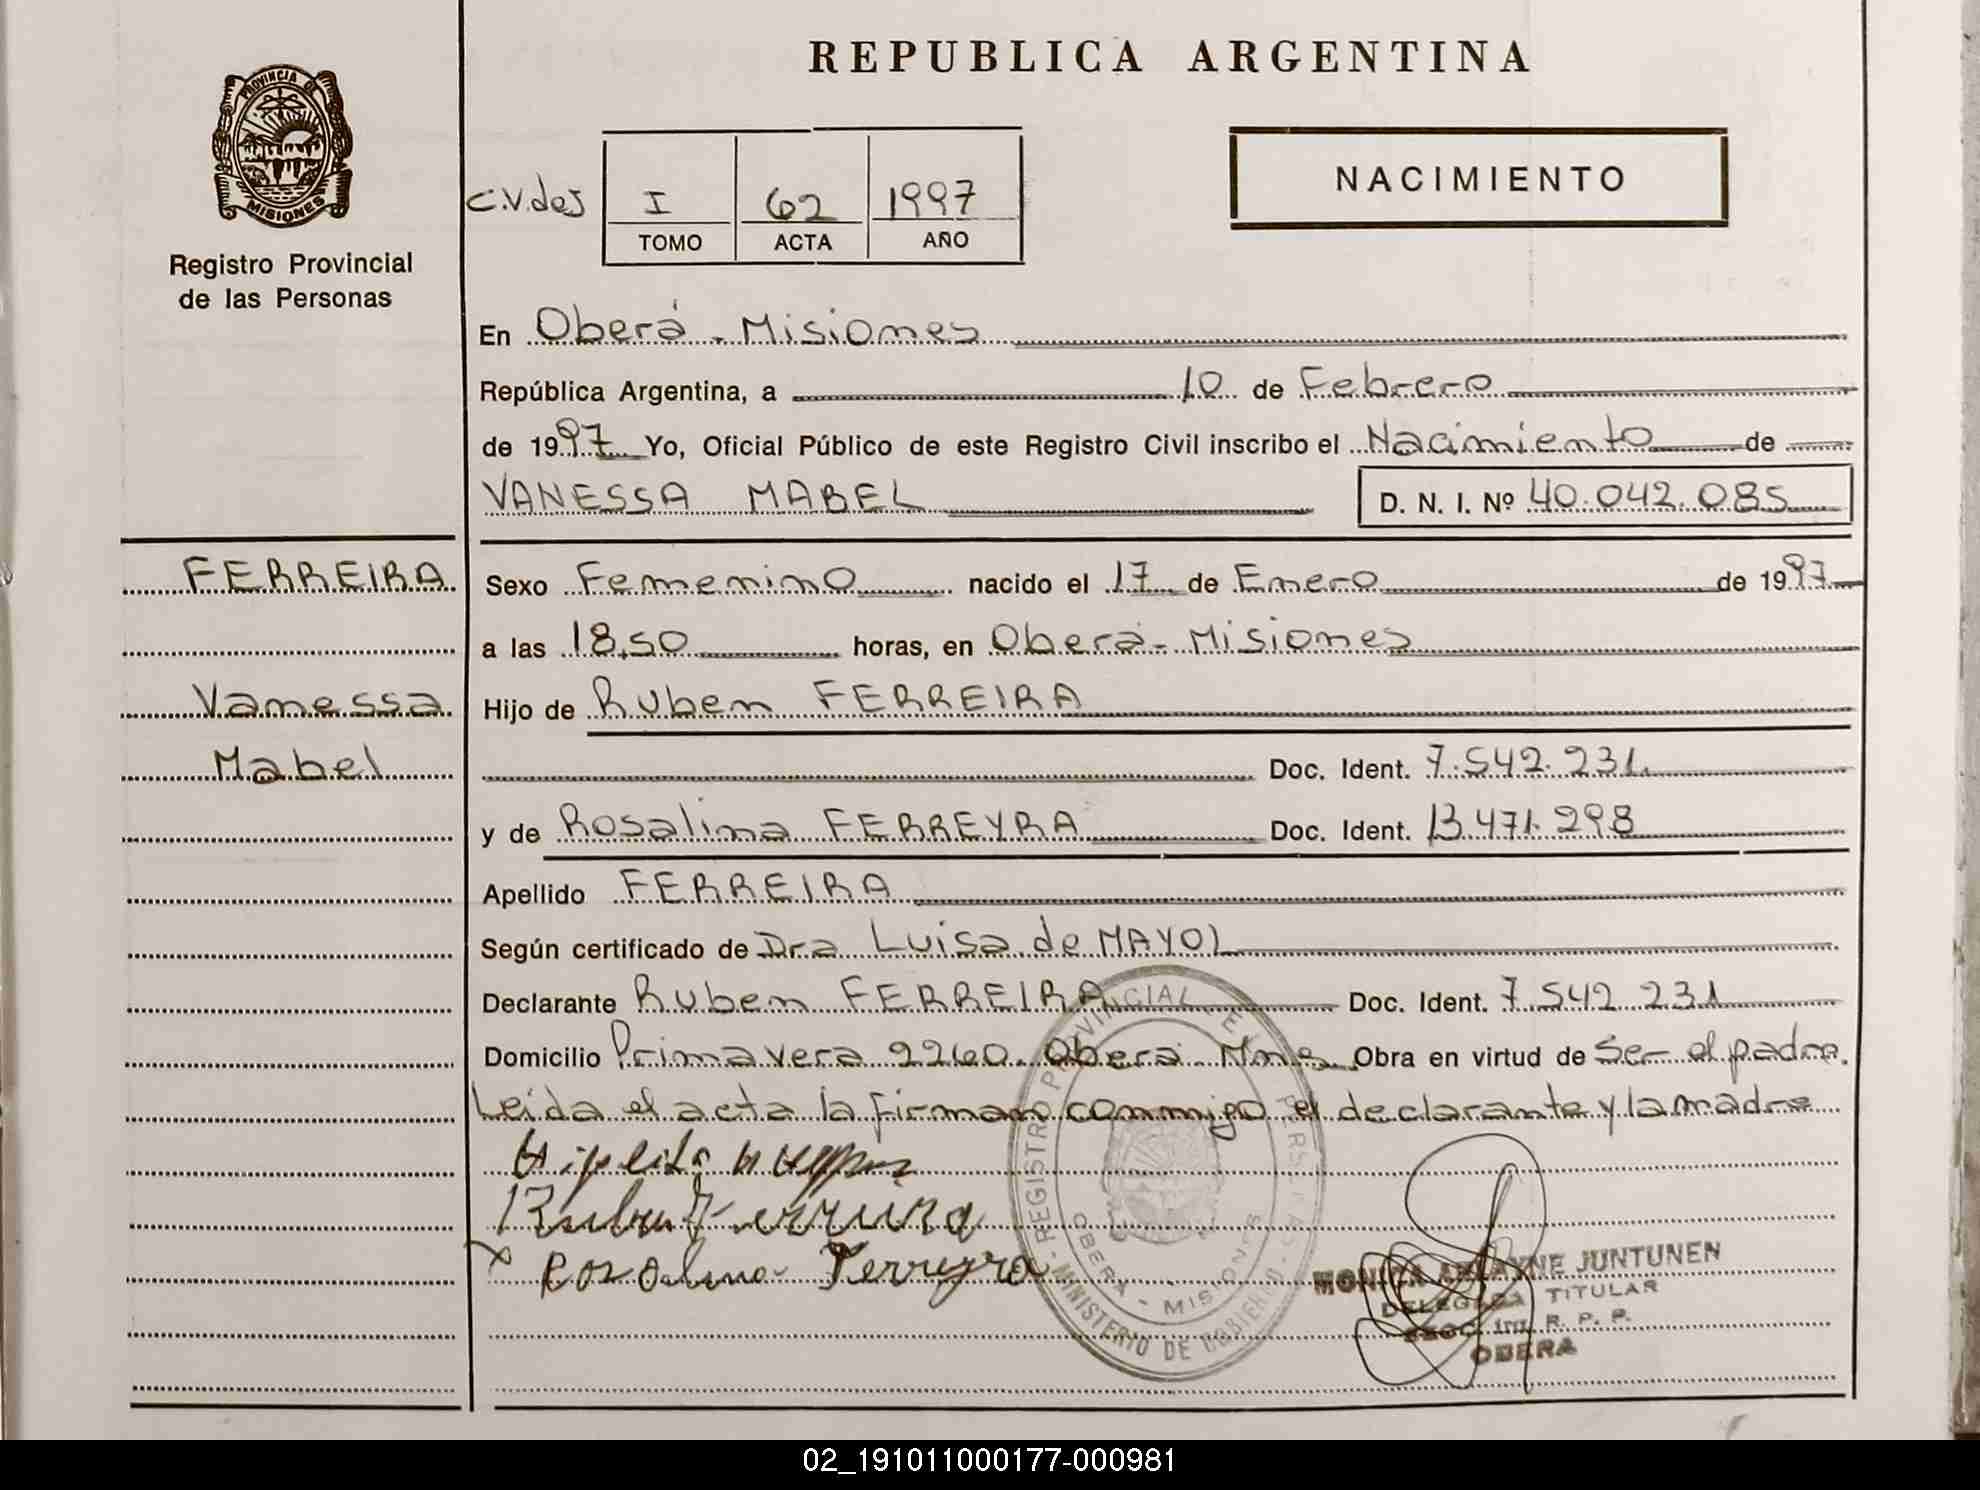 REPUBLICA ARGENTINA
PROVINCIA DE
MISIONES
Registro Provincial
de las Personas
C.V.des
I 62 1997
TOMO ACTA AÑO
NACIMIENTO
En Oberá - Misiones
República Argentina, a 10 de Febrero
de 1997 Yo, Oficial Público de este Registro Civil inscribo el Nacimiento de
VANESSA MABEL D. N. I. Nº 40.042.085
FERREIRA
Vanessa
Mabel
Sexo Femenino nacido el 17 de Enero de 1997
a las 18,50 horas, en Oberá - Misiones
Hijo de Ruben FERREIRA
Doc. Ident. 7.542.231
y de Rosalina FERREYRA Doc. Ident. 13.471.298
Apellido FERREIRA
Según certificado de Dra Luisa de MAYOL
Declarante Ruben FERREIRA Doc. Ident. 7.542.231
Domicilio Primavera 2260. Oberá. Mnes Obra en virtud de Ser el padre.
Leida el acta la firman conmigo el declarante y la madre
Hipolito
Ruben Ferreira
x Rosalina Ferreyra
REGISTRO PROVINCIAL DE LAS PERSONAS
OBERA - MISIONES
MINISTERIO DE GOBIERNO
MONICA JUNTUNEN
DELEGADA TITULAR
R. P. P.
OBERA
02_191011000177-000981